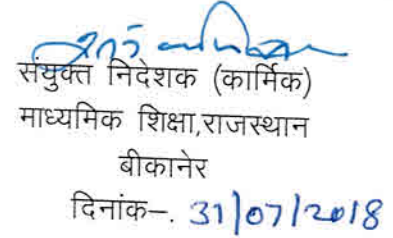 संयुक्त निदेशक (कार्मिक)
माध्यमिक शिक्षा,राजस्थान
बीकानेर
दिनांक–. 31/07/2018